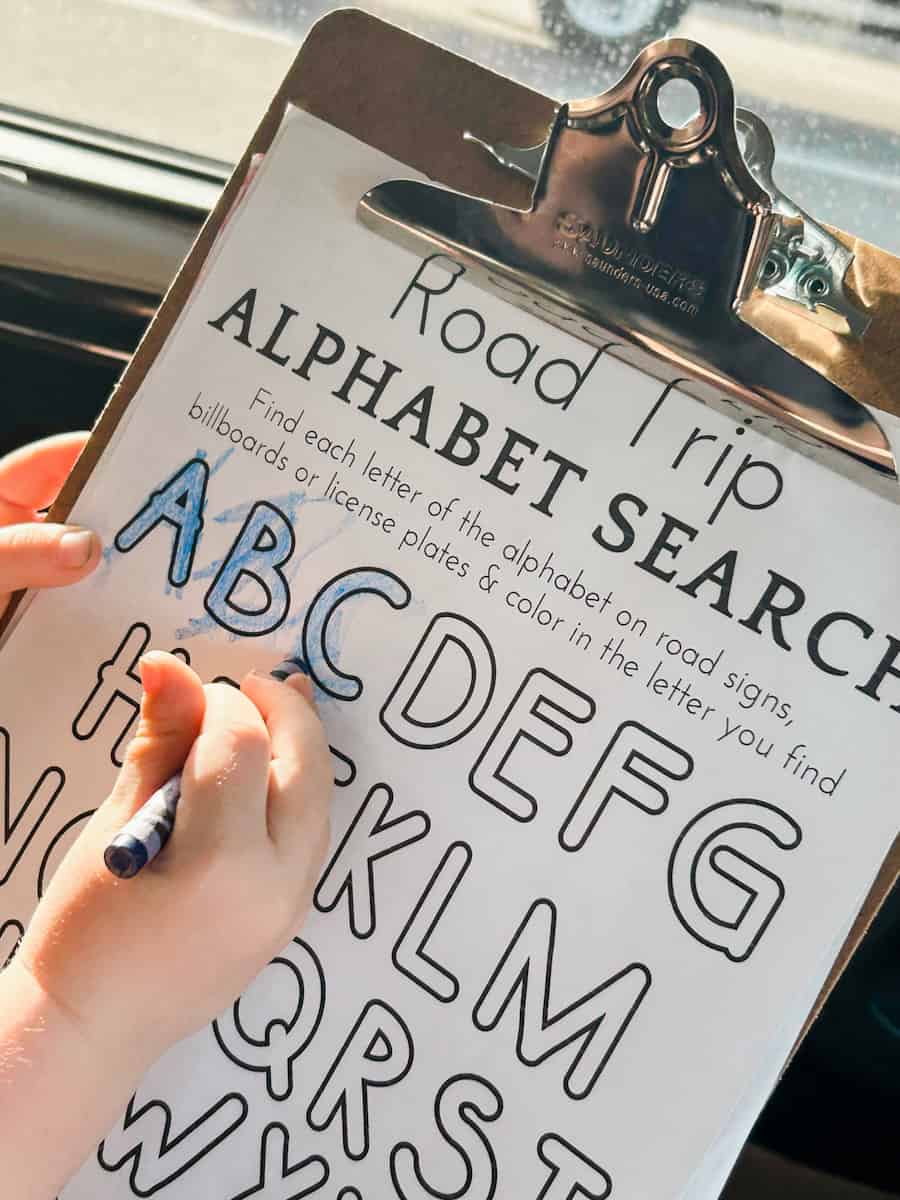 SAUNDERS
www.saunders-usa.com
Road Trip
ALPHABET SEARCH
Find each letter of the alphabet on road signs,
billboards or license plates & color in the letter you find
A B C D E F G
H K L M
N Q R S T
W Y